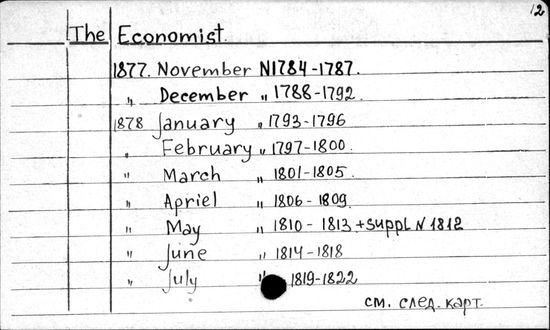 12
The Economist.
1877. November N1784-1787.
" December " 1788-1792.
1878 January " 1793-1796
" February " 1797-1800.
" March " 1801-1805.
" Apriel " 1806-1809.
" May " 1810-1813 + suppl N 1812
" June " 1814-1818
" July " 1819-1822
см. след. карт.